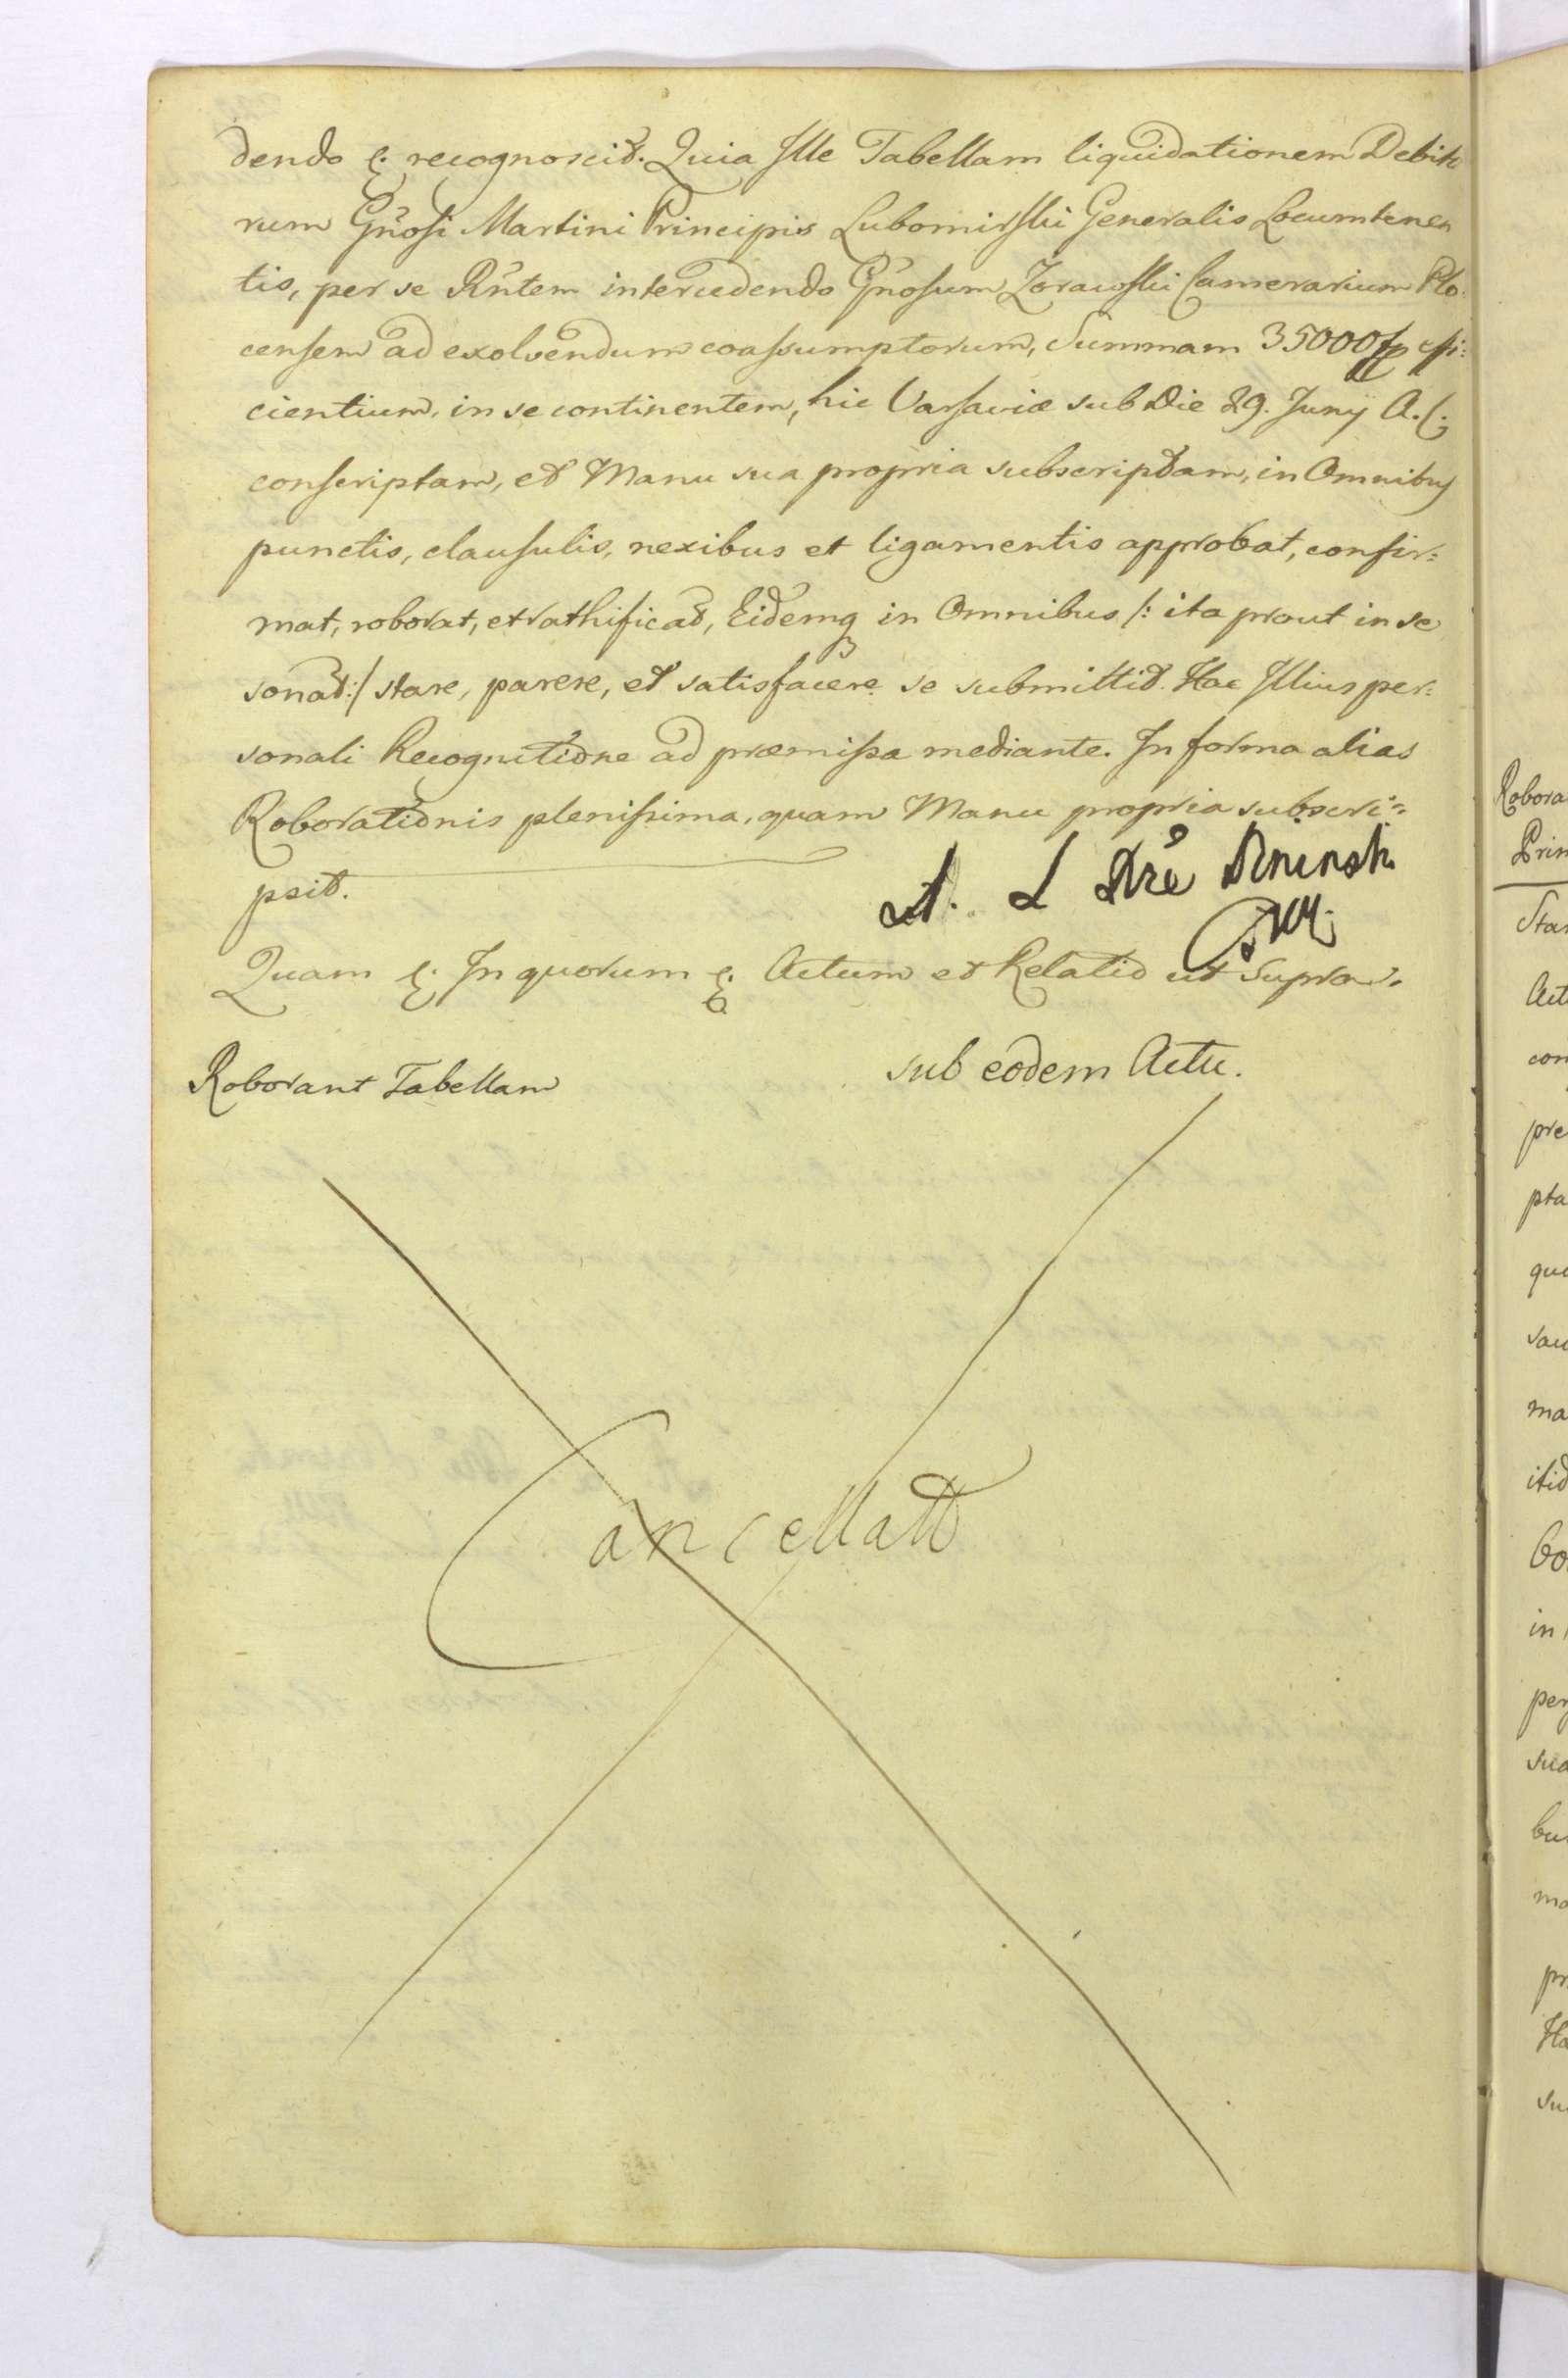 dendo &. recognoscit. Quia Ille Tabellam liquidationem Debito
rum Gnosi Martini Principis Lubomirski Generalis Locumtenen
tis, per se Rntem intercedendo Gnosum Zorawski Camerarium Plo
censem ad exolvendum coassumptorum, Summam 35000 fp effi:
cientium, in se continentem, hic Varsaviæ sub Die 29. Junÿ A. C.
conscriptam, et Manu sua propria subscriptam, in Omnibus
punctis, clausulis, nexibus et ligamentis approbat, confir:
mat, roborat, et rathificat, Eidemq in Omnibus /: ita prout in se
sonat :/ stare, parere, et satisfacere se submittit. Hac Illius per:
sonali Recognitione ad præmissa mediante. In forma alias
Roborationis plenissima, quam Manu propria subscri:
psit.
Quam &. In quorum &. Actum et Relatio ut Supra.
Roborant Tabellam
sub eodem Actu.
Cancellatt
Robora
Prin
Star
Act
con
pre
pta
qua
sau
ma
itid
Co
in
per
sua
bu
mo
pr
Ha
su